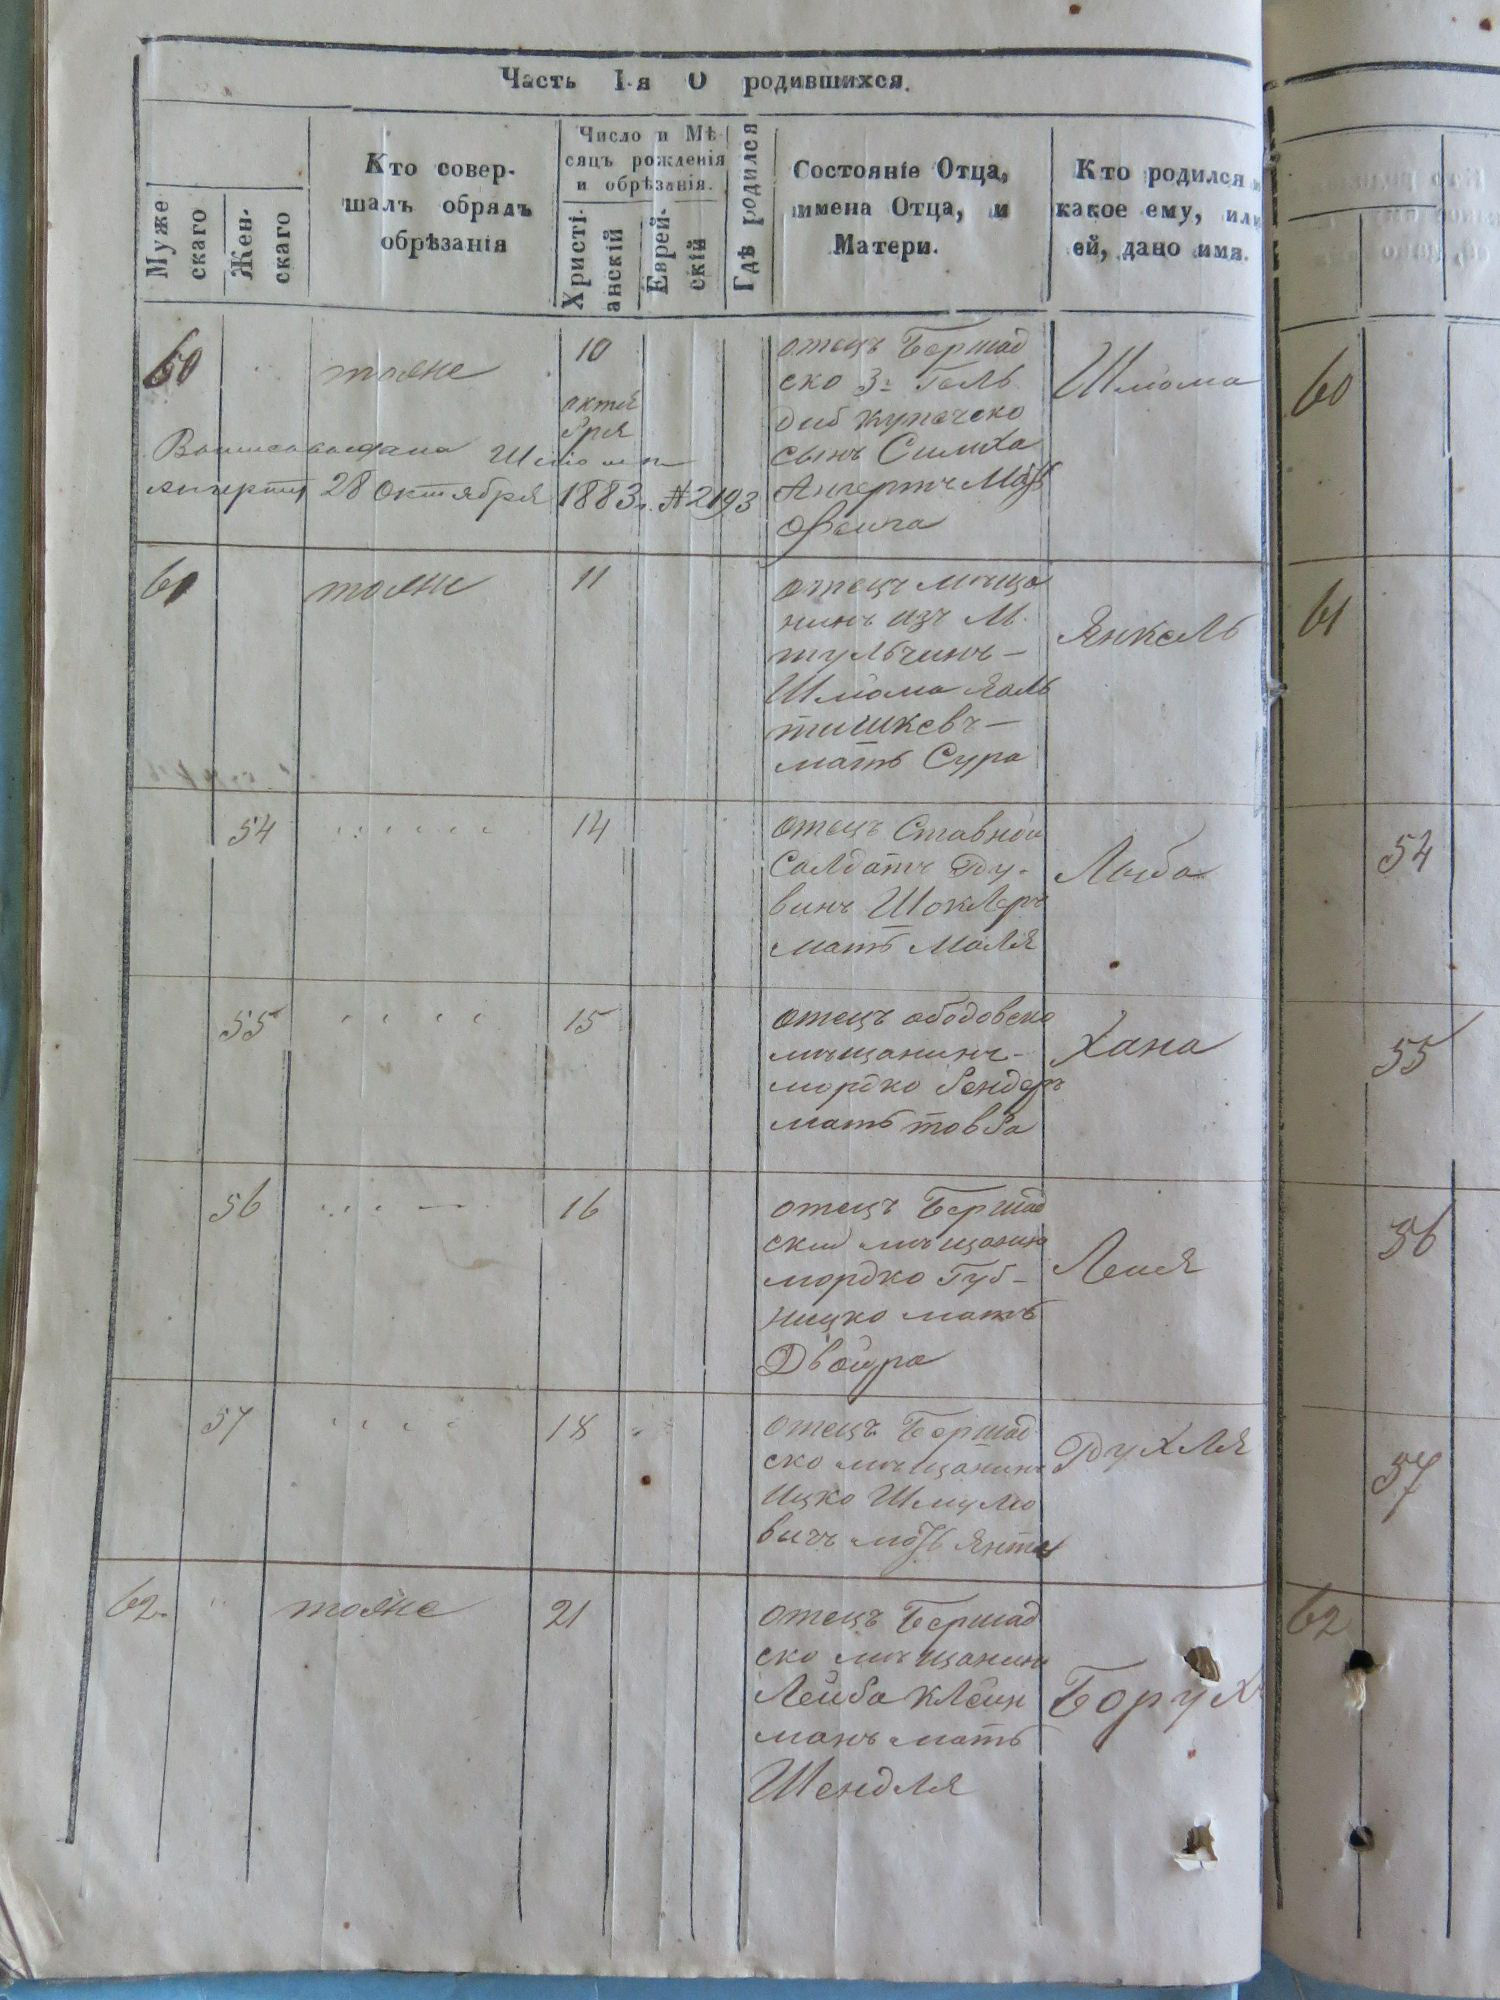 Часть I-я О родившихся.
Муже
скаго
Жен-
скаго
Кто совер-
шалъ обрядъ
обрѣзанія
Число и Мѣ-
сяцъ рожденія
и обрѣзанія.
Христі-
анскій
Еврей-
скій
Гдѣ родился
Состояніе Отца,
имена Отца, и
Матери.
Кто родился и
какое ему, или
ей, дано имя.
60
тоже
10
октя
бря
отецъ Бершад
ско 3й Гиль
діи купеческо
сынъ Симха
Ангертъ мать
Шліома
28 октября 1883 г. №2193
61
тоже
11
отецъ мѣща
нинъ изъ М.
тульчинъ
Шліома Яль
тишкевъ
мать Сура
Янкель
54
14
отецъ Ставной
Солдатъ Ду-
винъ Шоклеръ
мать Маля
Лыба
55
15
отецъ ободовско
мѣщанинъ
мордко Бендеръ
мать товба
Хана
56
16
отецъ Бершад
скій мѣщанинъ
мордко Губ-
ницко мать
Двойра
Лея
57
18
отецъ Бершад
ско мѣщанинъ
Ицко Шмулio
вичъ мать Янта
Рухля
62
тоже
21
отецъ Бершад
ско мѣщанинъ
Лейба Клейн
манъ мать
Шендля
Борухъ
60
61
54
55
56
57
62